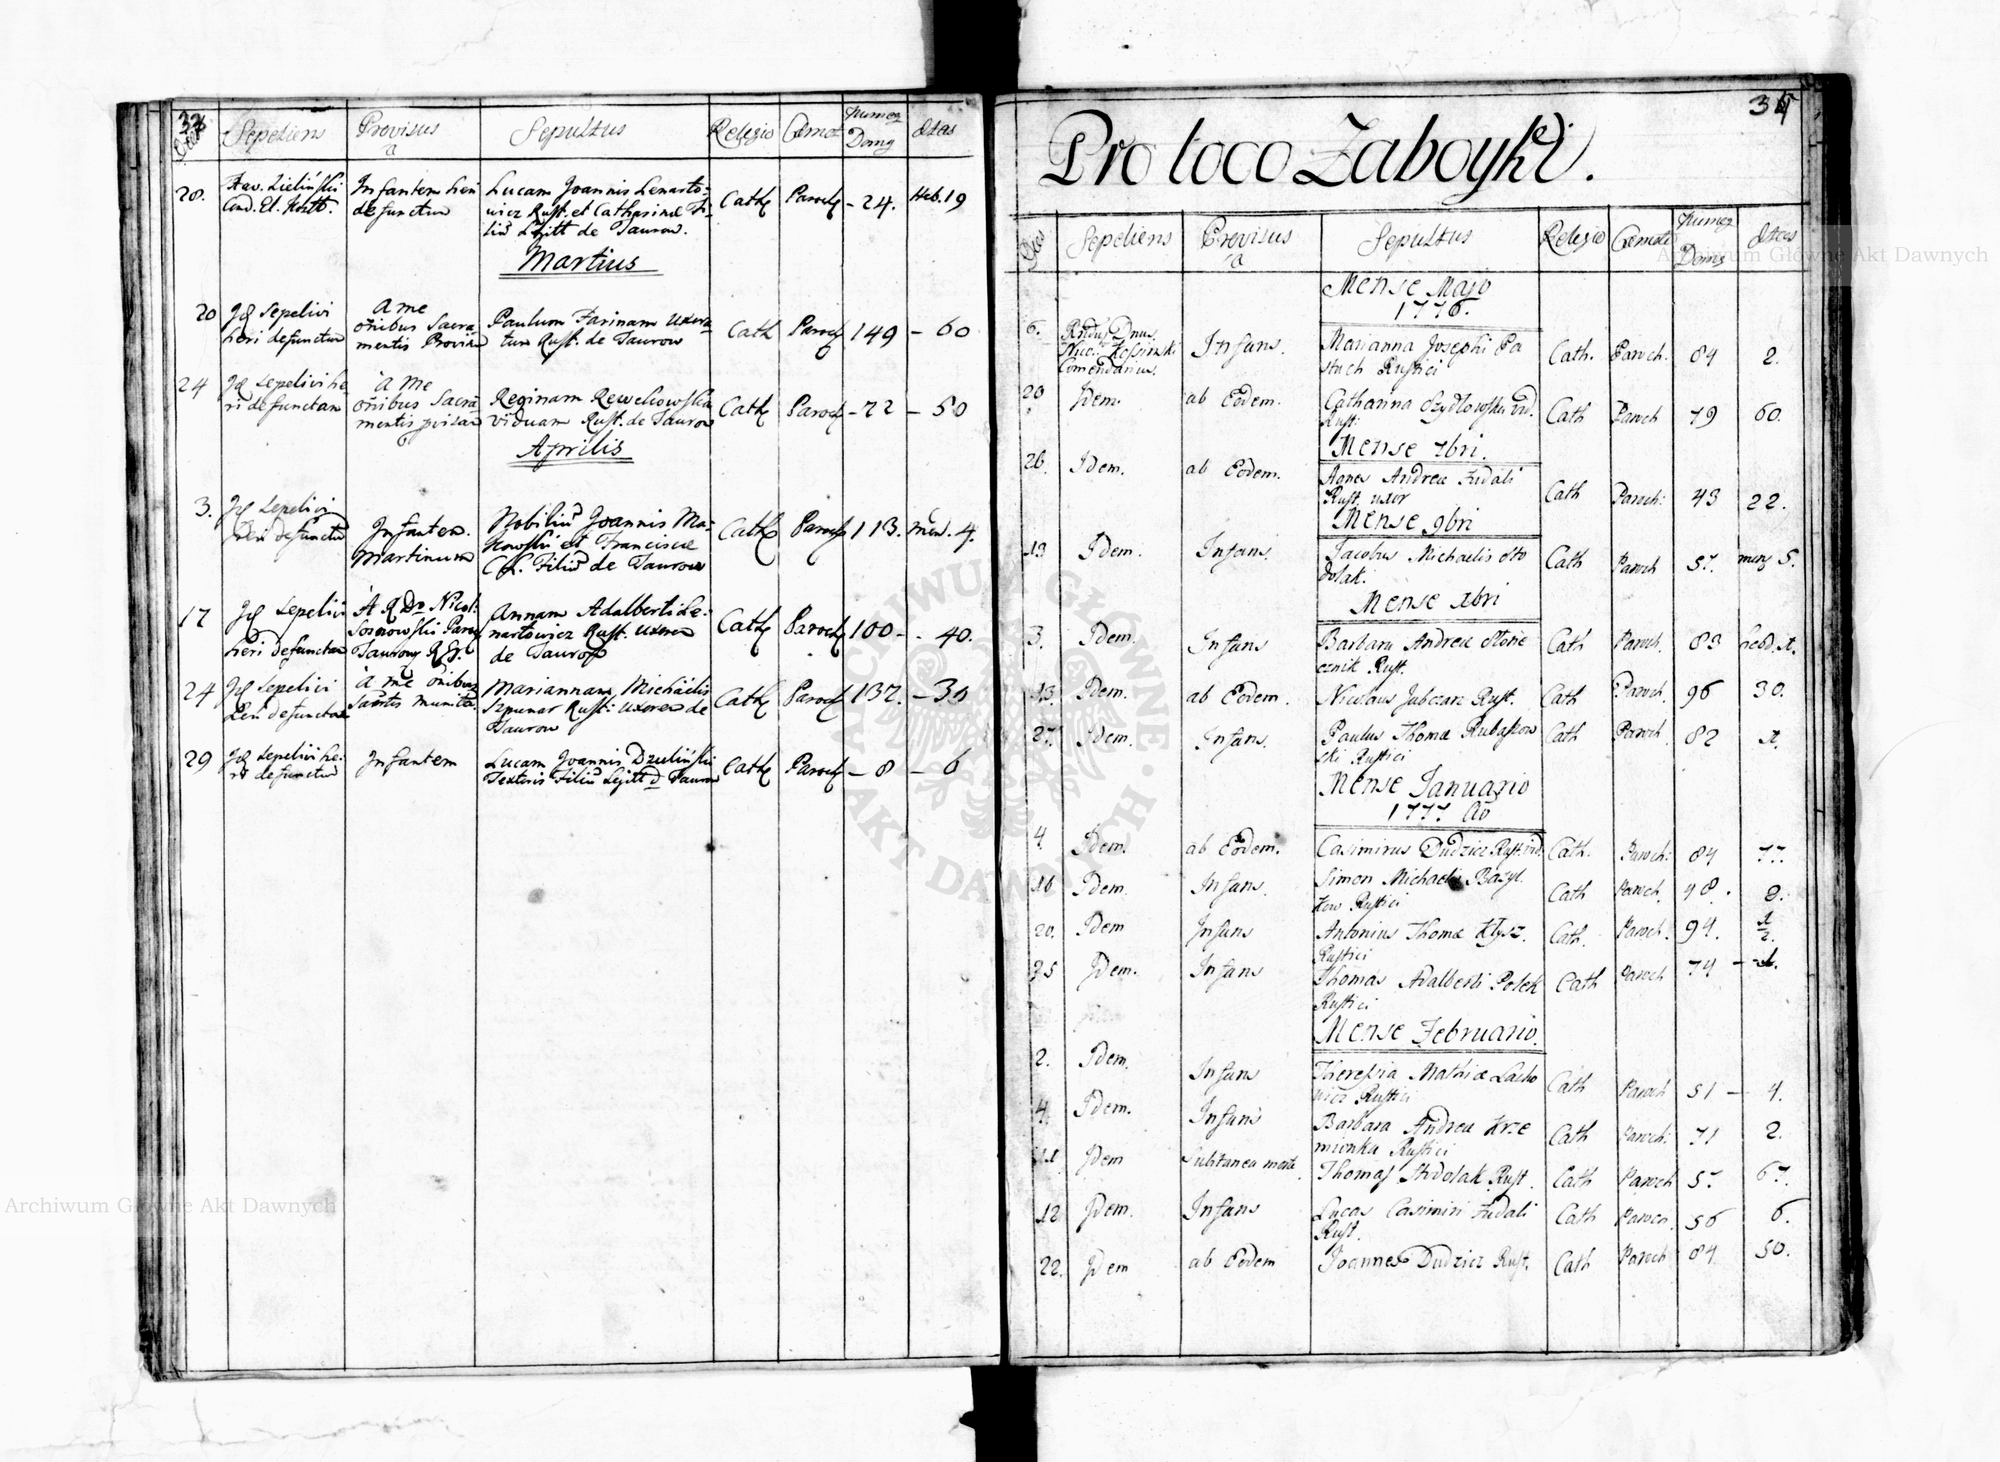 Sepeliens Provisus a Sepultus Religio Cœmet Numerus Domus Ætas
28. Infantem heri Lucam Joannis Lenarto=
defunctum wicz Rust. et Catharinæ Fi= Cath Paroch - 24. Heb. 19
de Taurow.
Martius
20 Idem Sepelivi A me
heri defunctum omnibus Sacra Paulum Farinam Uxora Cath Paroch 149 - 60
mentis Provisum tum Rust. de Taurow
24 Idem Sepelivi he A me
ri defunctam omnibus Sacra Reginam Cath Paroch - 72 - 50
mentis viduam Rust. de Taurow
Aprilis
3. Idem Sepelivi Nobiliu Joannis Ma=
heri defunctu Infantem et Franciscæ Cath Paroch 113. 4.
Martinum Filiu de Taurow
17 Idem Sepelivi A R D Nicol: Annam Adalberti Le=
heri defunctam nartowicz Rust. Uxorem Cath Paroch 100 - 40.
de Taurow
24 Idem Sepelivi A me omnibus Mariannam Michaelis
heri defunctam munita Szpunar Rust: Uxorem de Cath Paroch 132. - 30
Taurow
29 Idem Sepelivi he= Infantem Lucam Joannis Cath Paroch - 8 - 6
ri defunctu Textoris Filiu Legitt d Taurow
34
Pro loco Zaboyki.
Dies Sepeliens Provisus a Sepultus Religio Cœmet Numerus Domus Ætas
Mense Majo
1776.
6. Infans. Marianna Josephi Pa Cath. Paroch. 84 2.
Comendarius. stuch Rustici
20 Idem. ab Eodem. Catharina Szydlowska vid. Cath Paroch 79 60.
Rust:
Mense 7bri.
26. Idem. ab Eodem. Agnes Andreæ Fudali Cath Paroch: 43 22.
Rust. uxor
Mense 9bri
13 Idem. Infans Jacobus Michaelis Sto Cath Paroch 57. mens 5.
dolak.
Mense Xbri
3. Idem. Infans Barbara Andreæ Cath Paroch. 83
Rust.
13. Idem. ab Eodem. Nicolaus Jubczar Rust. Cath Paroch. 96 30.
27. Idem. Infans. Paulus Thomæ Rubaszow Cath Paroch. 82 1.
ski Rustici
Mense Januario
1777 Ao
4 Idem. ab Eodem. Casimirus Dudzicz Rust vid. Cath. Paroch: 84 77.
16 Idem. Infans. Simon Michaelis Bazyl Cath Paroch. 98. 8.
kow Rustici
20. Idem Infans Antonius Thomæ Kłysz. Cath. Paroch. 94. 1/2.
Rustici
25 Idem. Infans Thomas Adalberti Polek Cath Paroch 74 -
Rustici
Mense Februario.
2. Idem. Infans Theresia Mathiæ Lacho Cath Paroch 51 - 4.
wicz Rustici
4. Idem. Infans Barbara Andreæ Krze Cath Paroch: 71 2.
mionka Rustici
11 Idem Subitanea morte. Thomas Stodolak Rust. Cath Paroch 57. 67.
12 Idem. Infans Lucas Casimiri Fudali Cath Paroch 56 6.
Rust.
22. Idem ab Eodem Joannes Dudzicz Rust. Cath Paroch 84 50.
ARCHIWUM GŁÓWNE AKT DAWNYCH
Archiwum Główne Akt Dawnych
Archiwum Główne Akt Dawnych